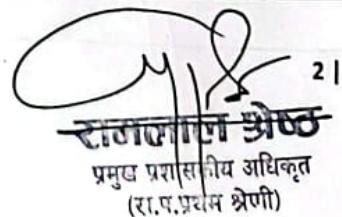 2|
रामलाल श्रेष्ठ
प्रमुख प्रशासकीय अधिकृत
(रा.प.प्रथम श्रेणी)